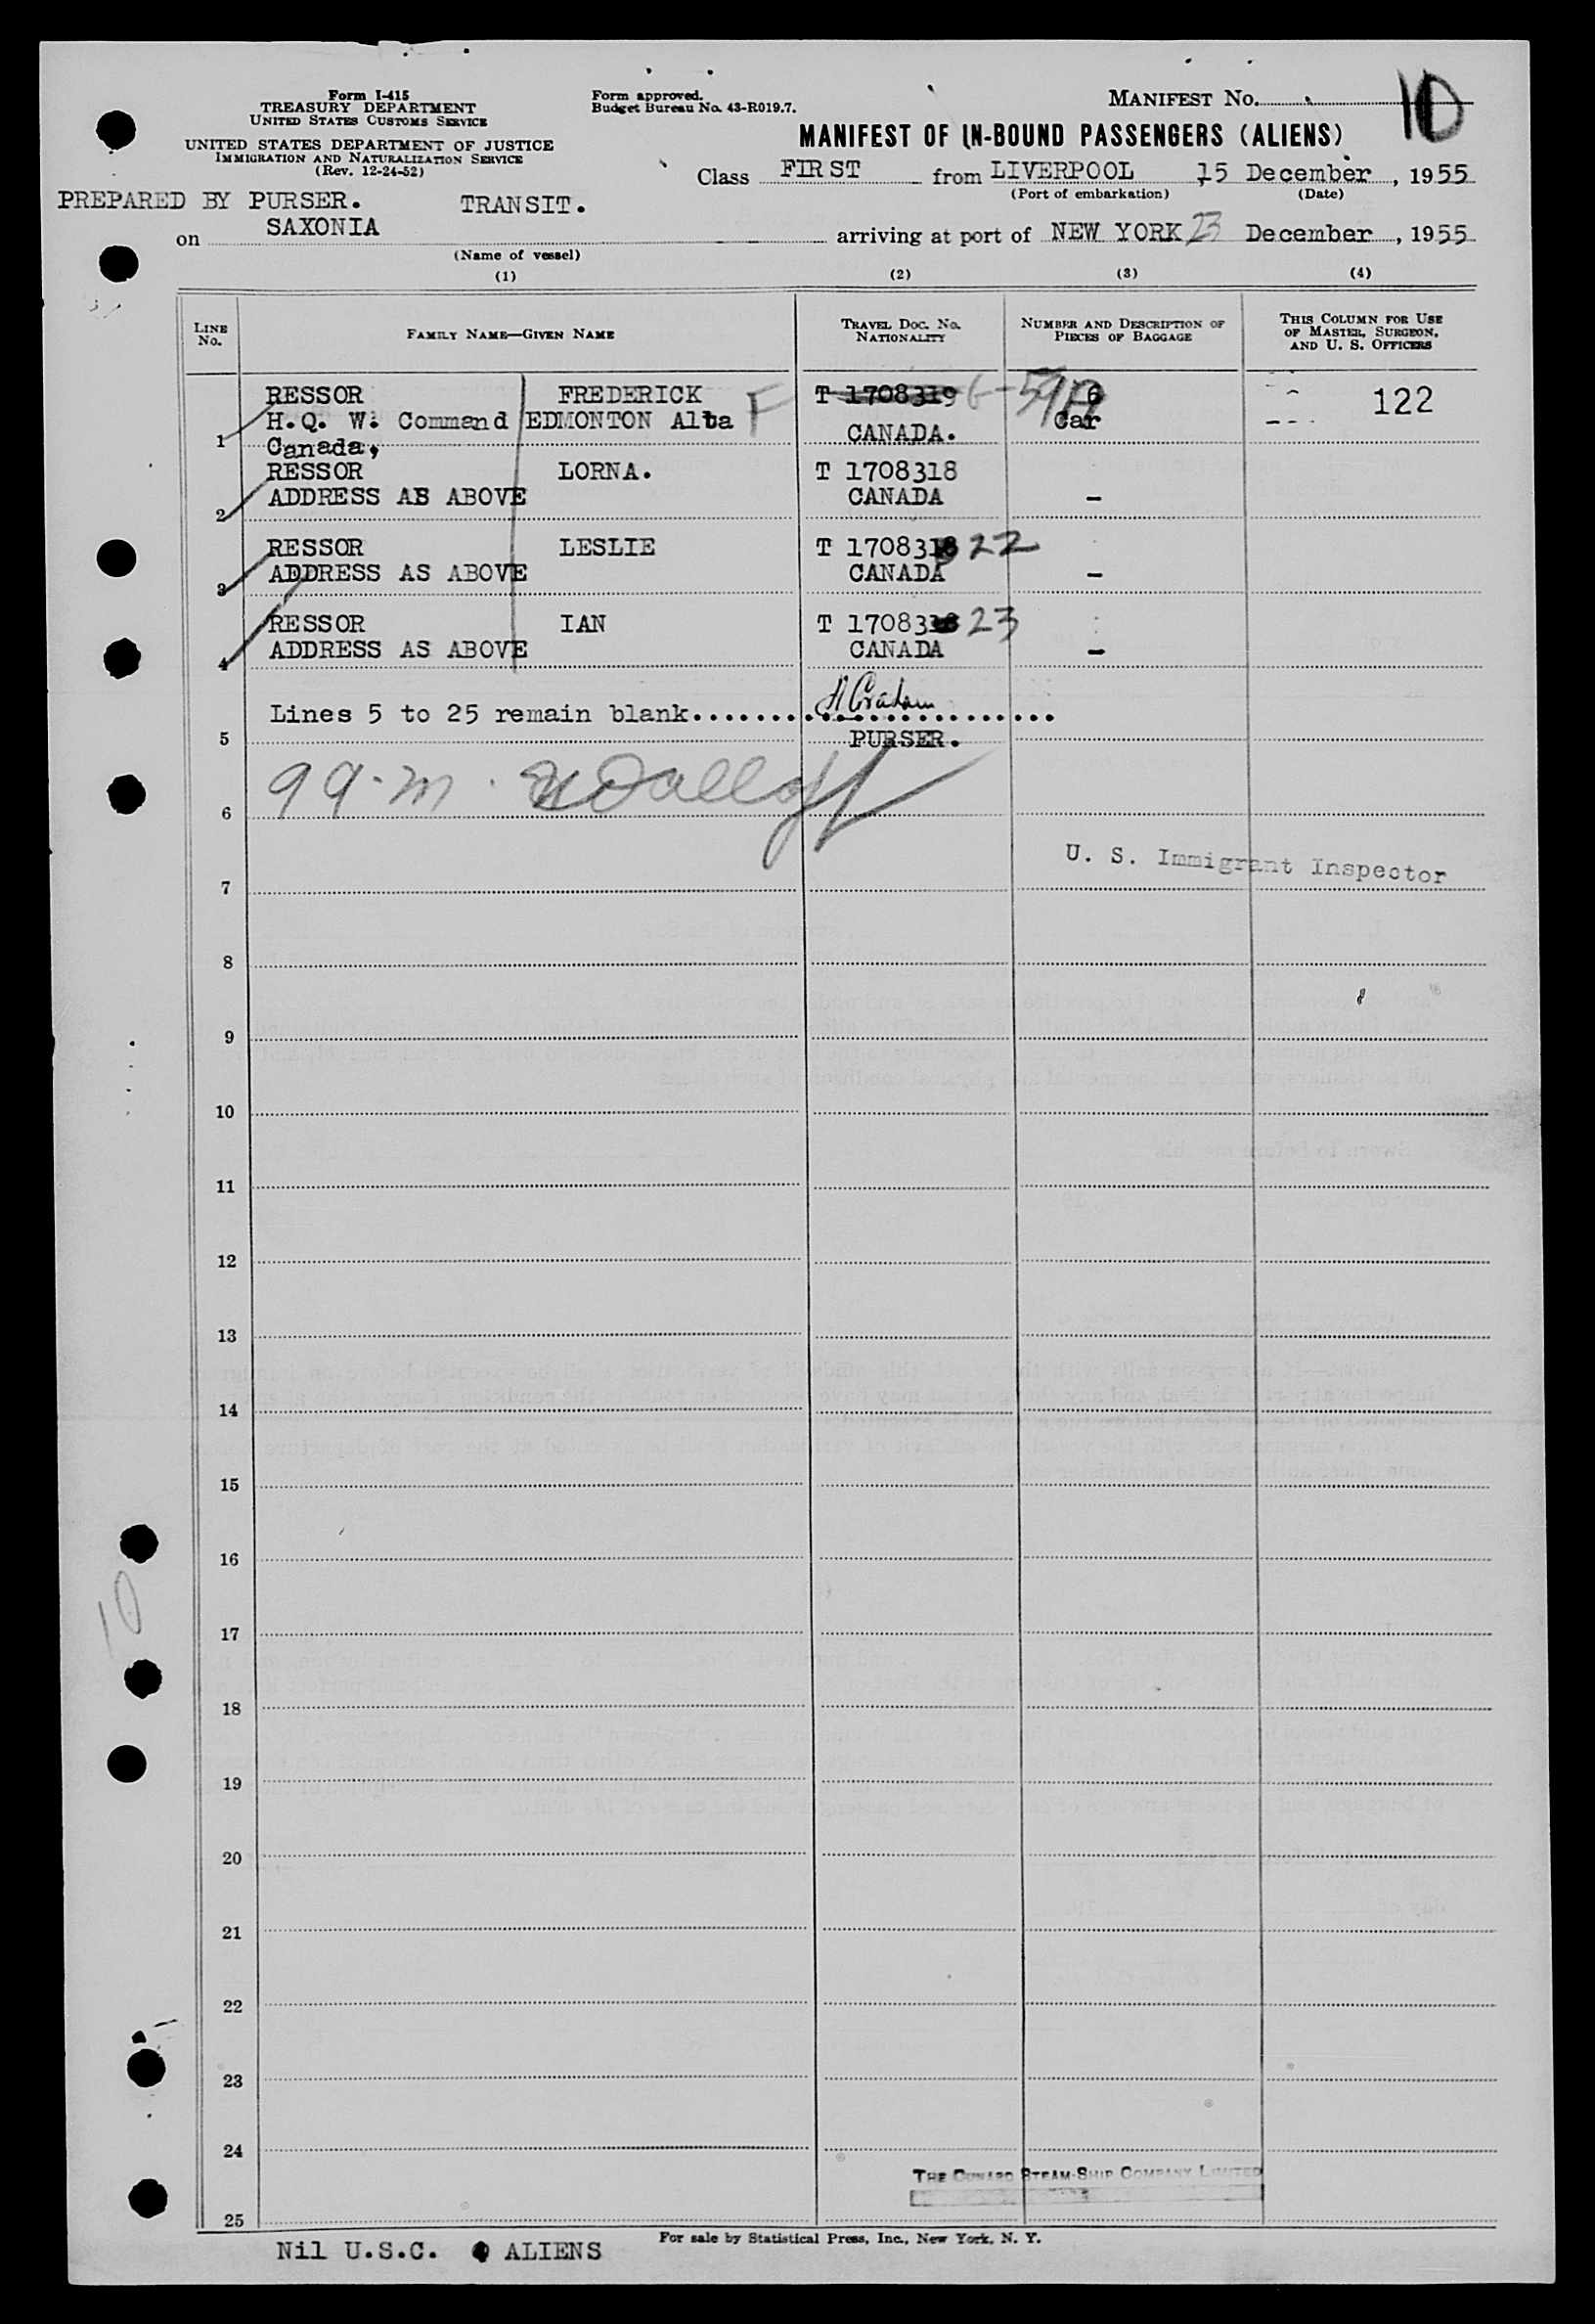 Form I-415
TREASURY DEPARTMENT
UNITED STATES CUSTOMS SERVICE
UNITED STATES DEPARTMENT OF JUSTICE
IMMIGRATION AND NATURALIZATION SERVICE
(Rev. 12-24-52)
Form approved.
Budget Bureau No. 43-R019.7.
MANIFEST NO. 10
MANIFEST OF IN-BOUND PASSENGERS (ALIENS)
Class FIRST from LIVERPOOL 15 December, 1955
(Port of embarkation) (Date)
PREPARED BY PURSER. TRANSIT.
on SAXONIA arriving at port of NEW YORK 23 December, 1955
(Name of vessel)
(1) (2) (3) (4)
LINE No.
FAMILY NAME—GIVEN NAME
TRAVEL DOC. No. NATIONALITY
NUMBER AND DESCRIPTION OF PIECES OF BAGGAGE
THIS COLUMN FOR USE OF MASTER, SURGEON, AND U. S. OFFICERS
RESSOR FREDERICK F T 1708319 6 122
H.Q. W. Command EDMONTON Alta Car
1 Canada, CANADA.
RESSOR LORNA. T 1708318
2 ADDRESS AS ABOVE CANADA -
RESSOR LESLIE T 170831822
3 ADDRESS AS ABOVE CANADA -
RESSOR IAN T 170831823
4 ADDRESS AS ABOVE CANADA -
Lines 5 to 25 remain blank.......................
5 PURSER.
6 99-m.
U. S. Immigrant Inspector
7
8
9
10
11
12
13
14
15
16
10
17
18
19
20
21
22
23
24
THE CUNARD STEAM-SHIP COMPANY LIMITED
25
For sale by Statistical Press, Inc., New York, N. Y.
Nil U.S.C. ALIENS